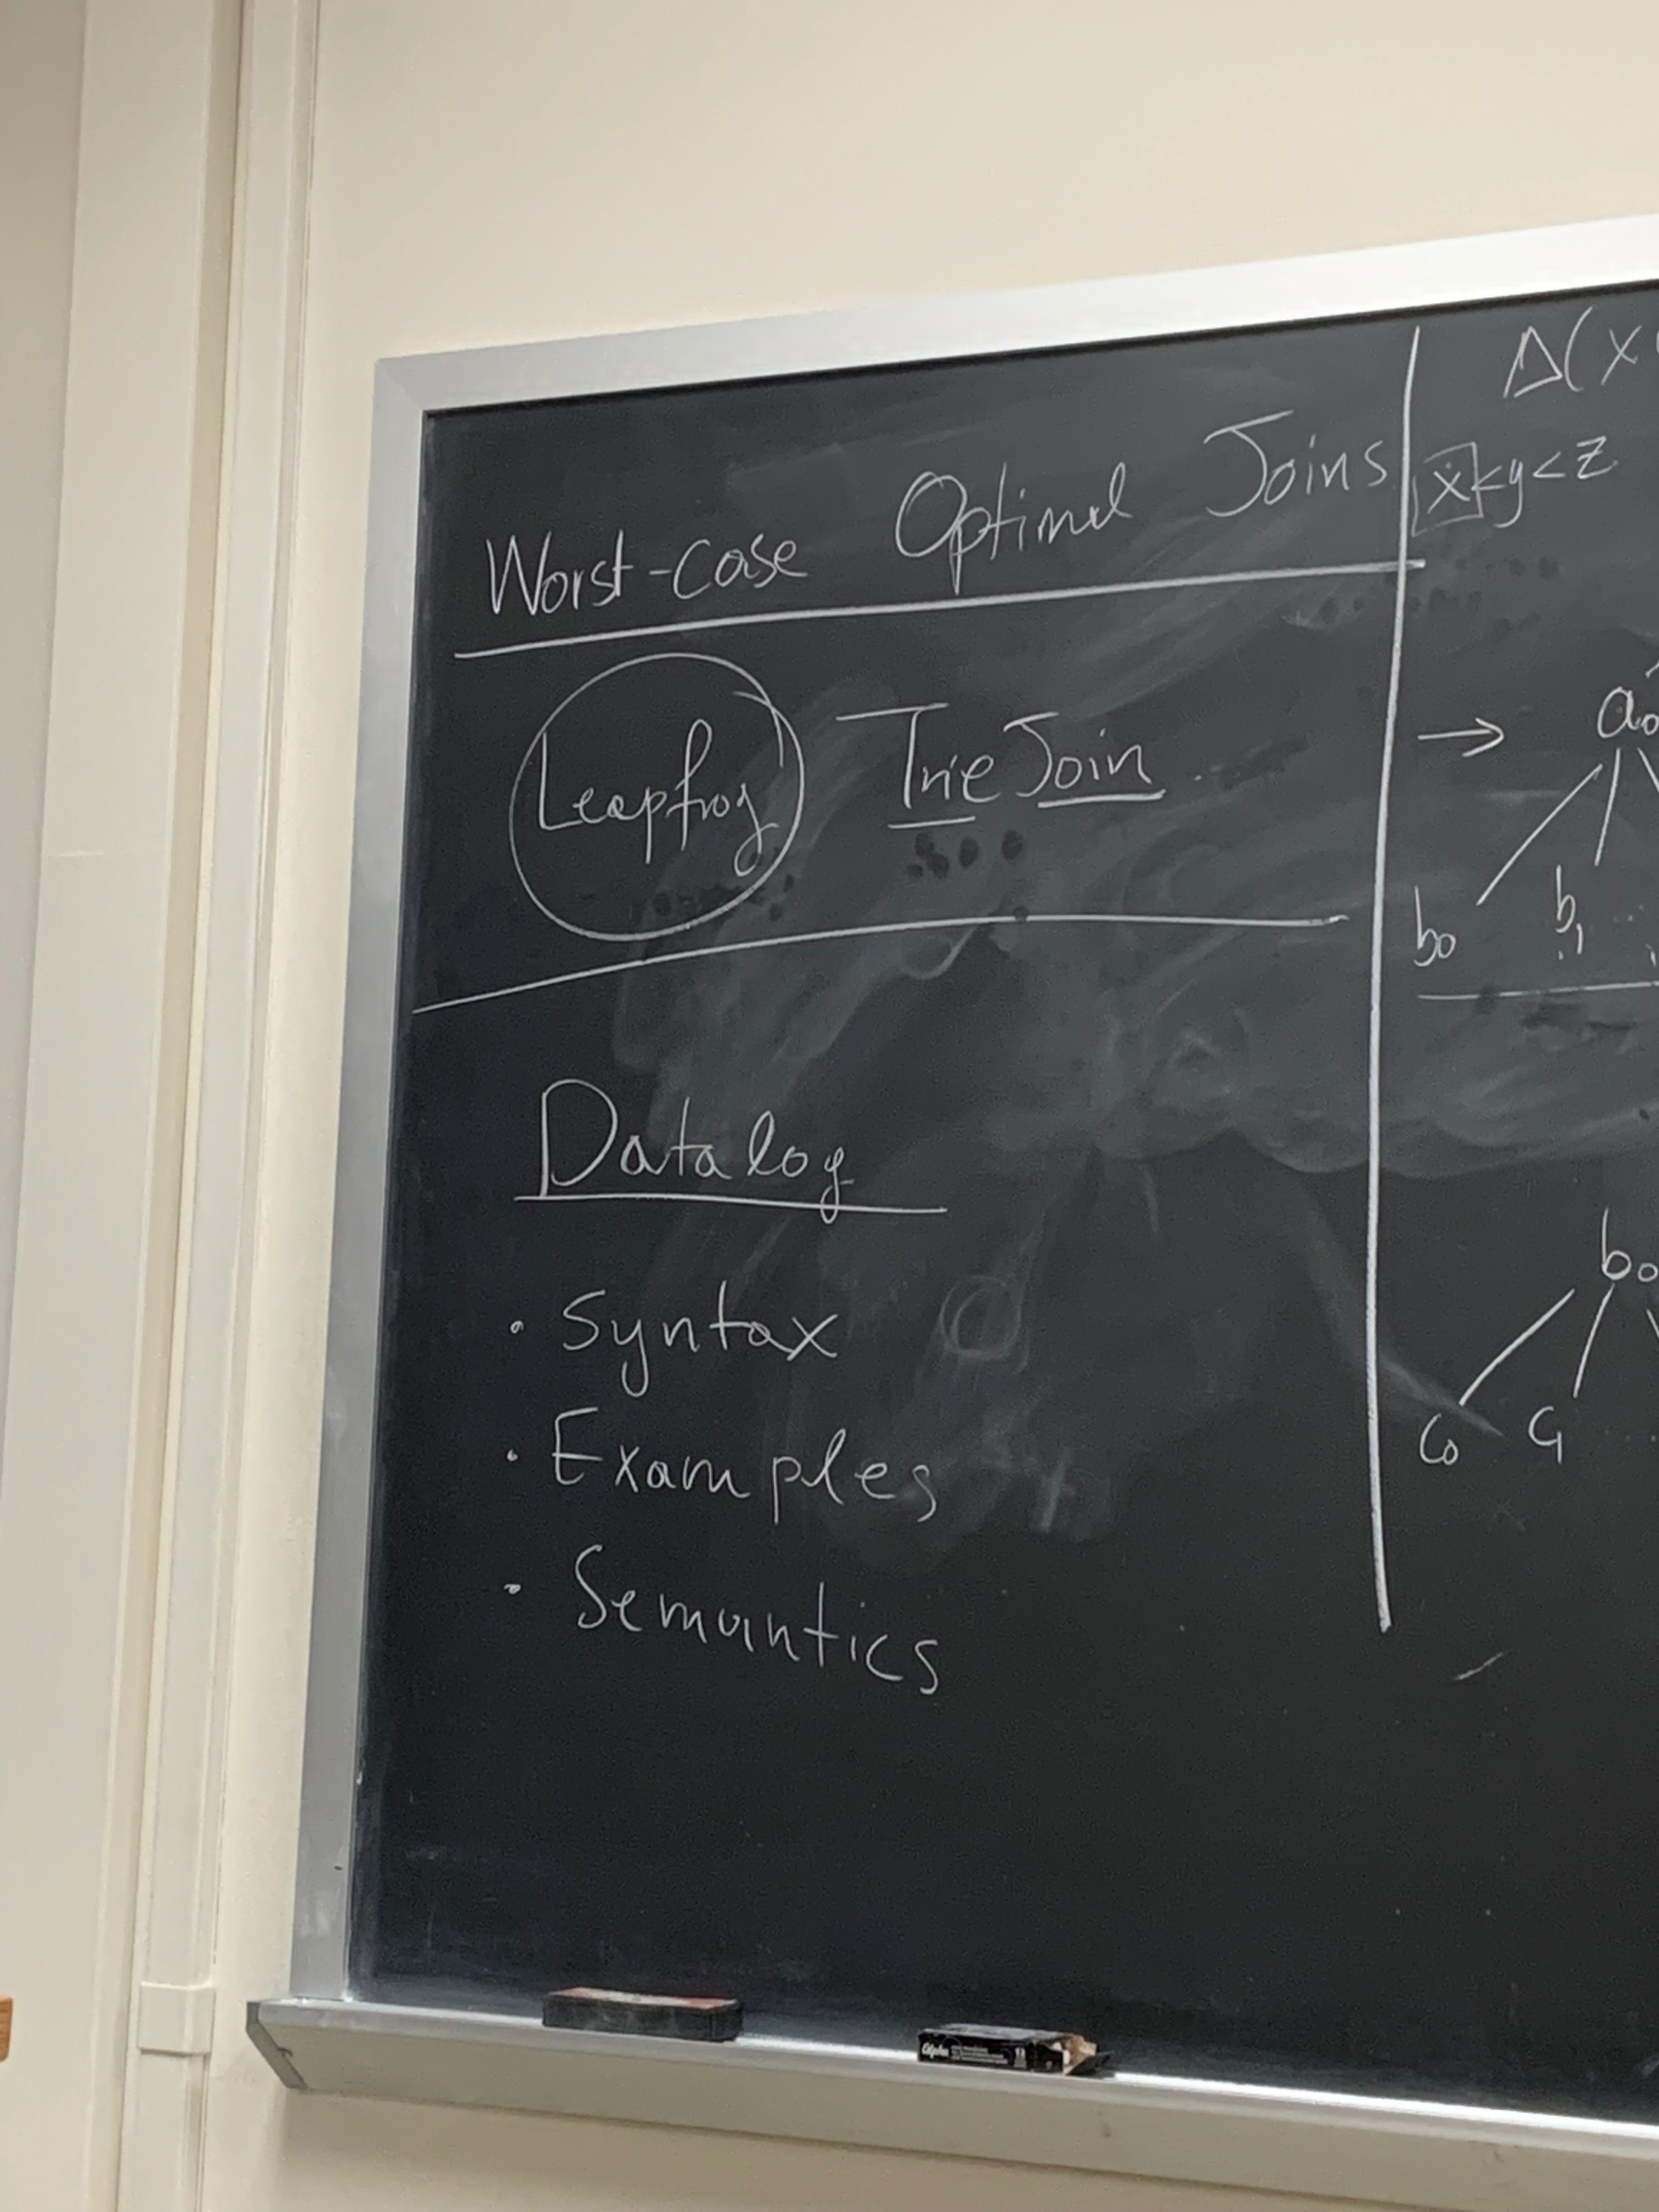 Worst-case Optimal Joins
Leapfrog TrieJoin
Datalog
· Syntax
· Examples
· Semantics
Δ(x
x<y<z
→ a₀
b₀ b₁
b₀
c₀ c₁
Alpha